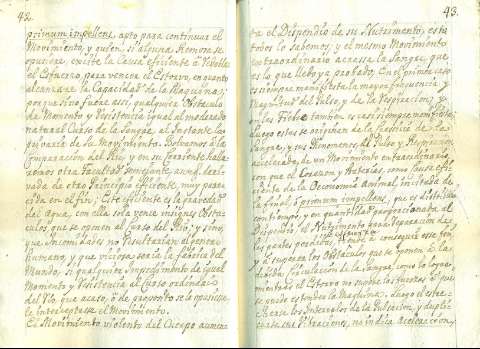 42.
primum impellens, apto para continuar el
Movimiento, y quien si alguna Remora se
opusiere, excite la Causa eficiente à redoblar
el esfuerzo, para vencer el Estorvo, en quanto
alcanzare la Capacidad de la Maquina;
porque si no fuese assi, qualquiera obstaculo
de Momento y Resistencia igual al moderado
natural Curso de la Sangre, al instante las
privaria de su Movimiento. Bolvamos à la
Comparacion del Rio, y en su Corriente halla-
remos otra facultad semejante, aunq. deri-
vada de otro Principio eficiente, muy pare-
cida en el fin; Este eficiente es la gravedad
del agua, con ella sola vence insignes obsta-
culos que se oponen al Curso del Rio; y sino,
que incomodidades no resultarian al genero
humano, y que viciosa seria la fabrica del
Mundo, si qualquiera impedimento de igual
Momento y Resistencia al Curso ordinario
del Rio, que acaso, ò de proposito se le opusiesse,
le interceptasse el Movimiento.
El Movimiento violento del Cuerpo aumen-
43.
ta el Dispendio de su Nutrimento, esto
todos lo sabemos, y el mesmo Movimiento
extraordinario acressa la Sangre, que
es lo que llevo ya probado. En el primer caso
es siempre manifiesta la mayor frecuencia y
Magnitud del Pulso, y de la Respiracion, y
en las fiebres tambien es casi siempre manifiesta;
luego estas se originan de la
Sangre, y sus Phenomenos de Pulso y Respiracion
acelerada, de un Movimiento extraordinario
con que el Corazon y Arterias, como Causa efi-
ciente de la Oeconomia Animal, incitada de
la final, ò primum impellens, que es distribuir
continuo, y en quantidad proporcionada al
Dispendio, el Nutrimento para reparacion de
las partes perdidas, conseguir esse fin
y à superar los obstaculos que se oponen à la
debida Circulacion de la Sangre, como lo logra,
mientras el Estorvo no supere las fuerzas à que
se puede estender la Maquina. Luego el estre-
charse los Intervalos de la Pulsacion, y dupli-
carse sus Vibraciones, no indica Aceleracion,